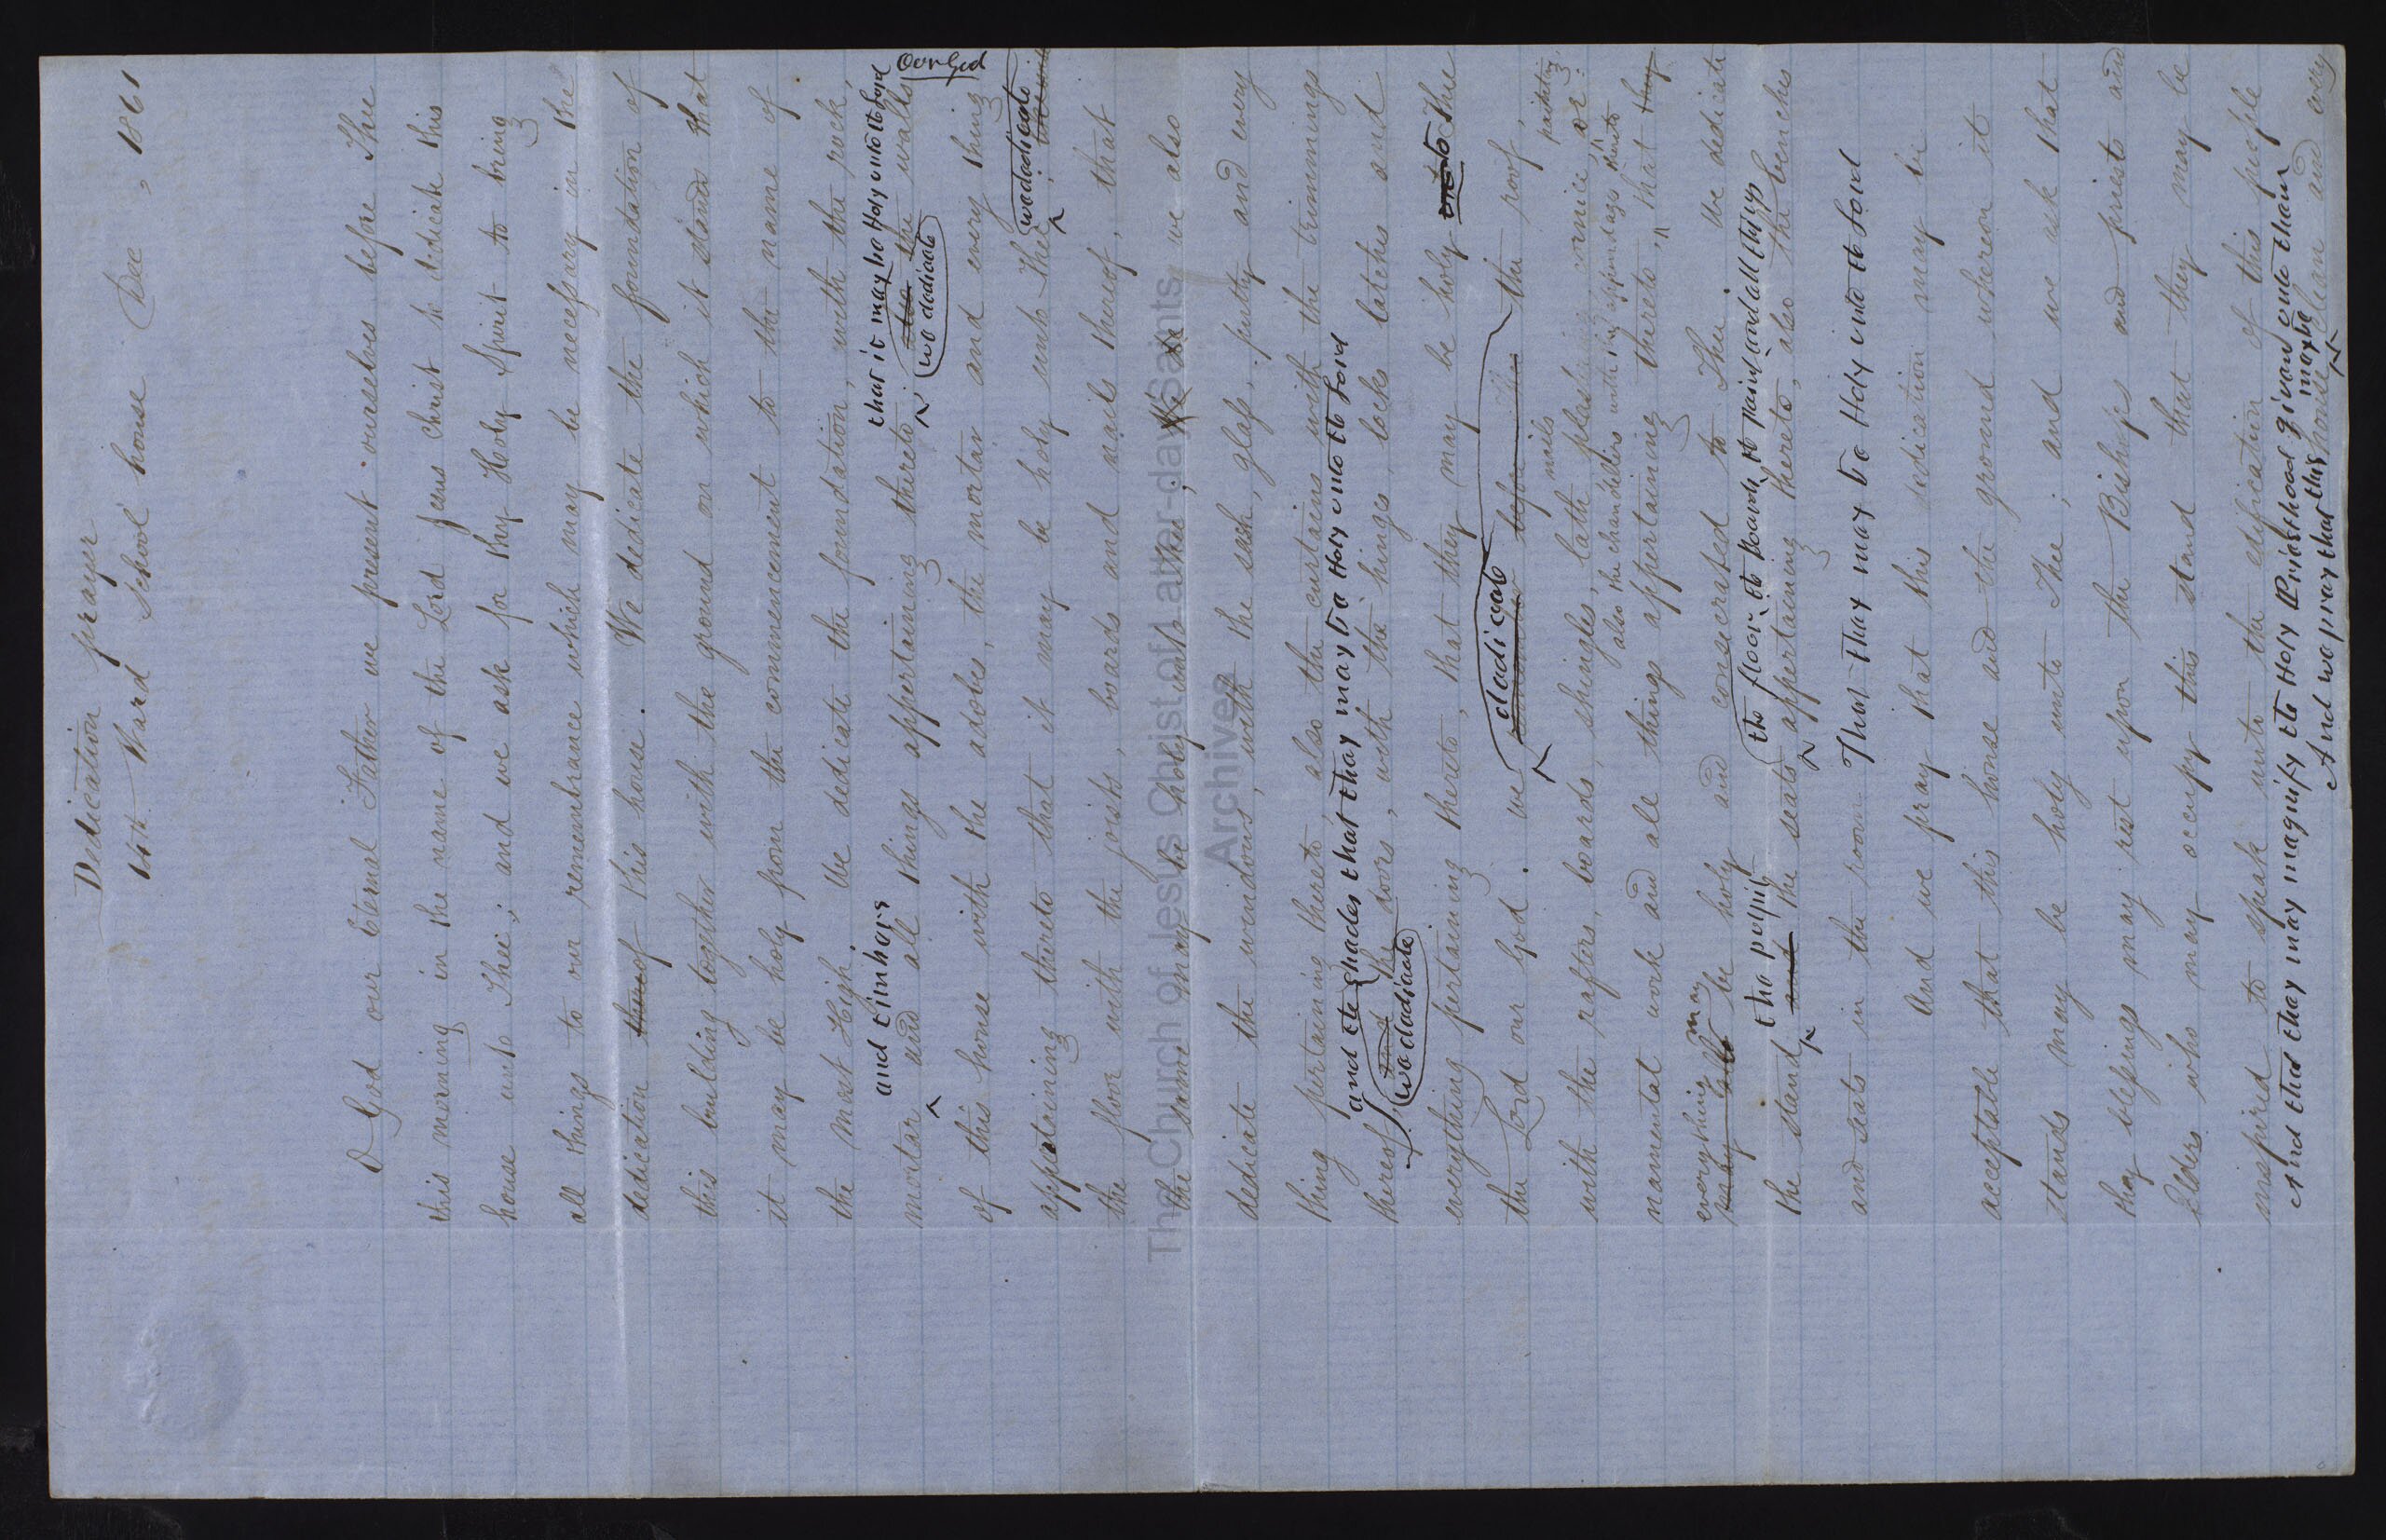 Dedication prayer
14th Ward School house Dec , 1861
O God our Eternal Father we present ourselves before Thee
this morning in the name of the Lord Jesus Christ to dedicate this
house unto Thee; and we ask for thy Holy Spirit to bring
all things to our remembrance which may be necessary in the
dedication thereof this house. We dedicate the foundation of
this building together with the ground on which it stands that
it may be holy from the commencement to the name of
the most High. We dedicate the foundation, with the rock,
and timbers that it may be Holy unto the Lord our God
mortar and all things appertaining thereto. the the walls
we dedicate
of this house with the adobes, the mortar and every thing
we dedicate
appertaining thereto that it may be holy unto Thee,
the floor with the joists, boards and nails thereof, that
the same may be holy unto thee, We we also
dedicate the windows, with the sash, glass, putty and every
thing pertaining thereto also the curtains with the trimmings
and the shades that they may be Holy unto the Lord
thereof, the doors, with the hinges, locks latches and
we dedicate
everything pertaining thereto, that they may be holy unto to the
the Lord our God. we dedicate before Thee the roof,
with the rafters, boards, shingles, lath nails plastering cornice, painting or
also the chandeliers with the appendages thereto
namental work and all things appertaining thereto, that they
everything may
may all be holy and consecrated to Thee. We dedicate
the pulpit the floor, the boards, the nails, and all things
the stand and the seats appertaining thereto, also the benches
and seats in the room. That they may be Holy unto the Lord
And we pray that this dedication may be
acceptable that this house and the ground whereon it
stands may be holy unto Thee; and we ask that
thy blessings may rest upon the Bishops and priests and
Elders who may occupy this stand that they may be
inspired to speak unto the edification of this people
And that they may magnify the Holy Priesthood given unto them
And we pray that this house may be clean and every